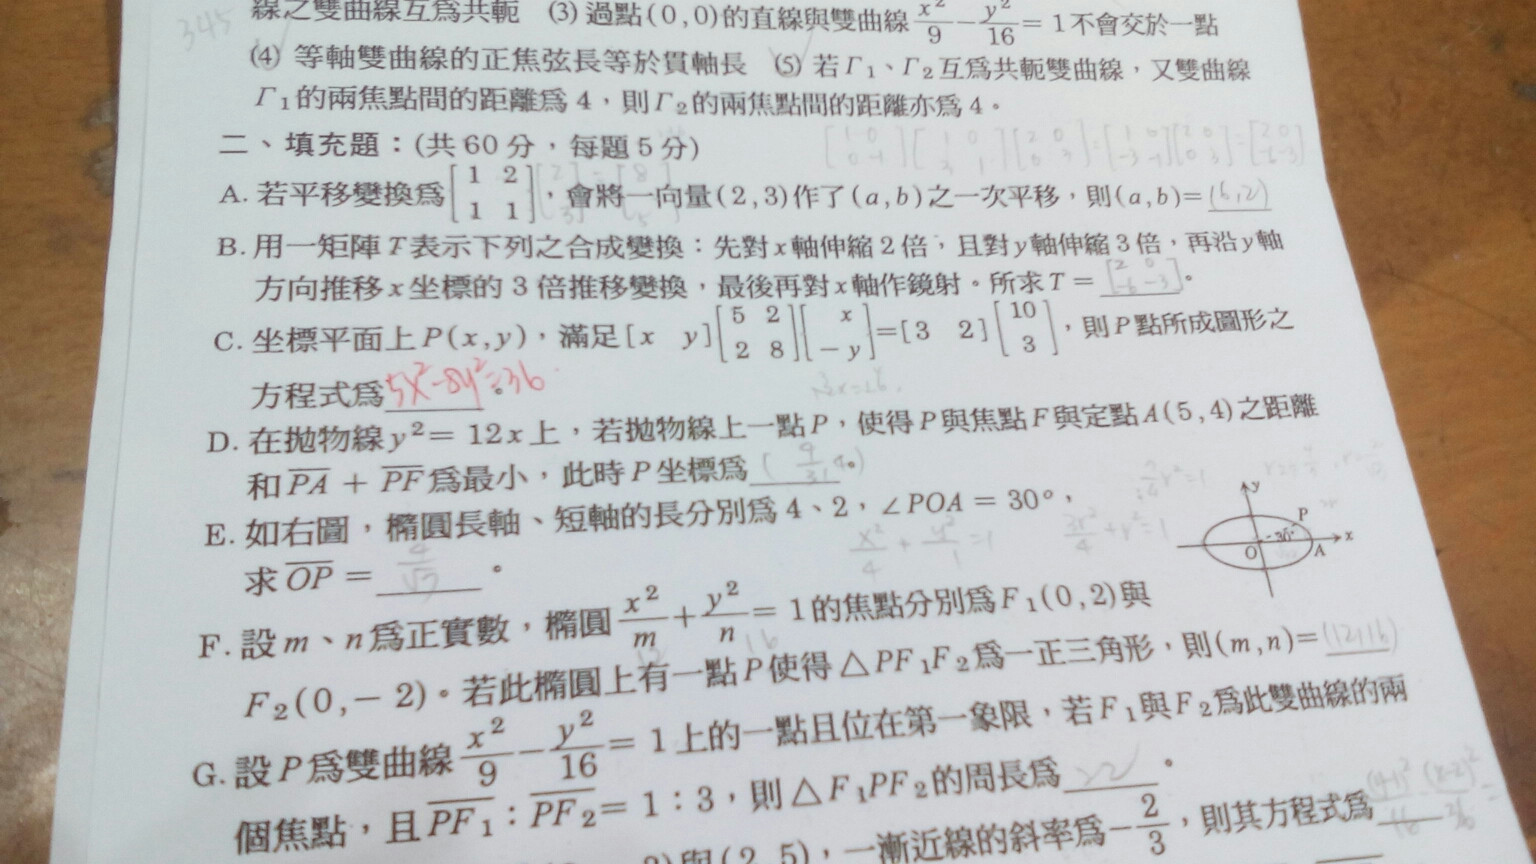 線之雙曲線互為共軛 (3) 過點(0,0)的直線與雙曲線 x²/9 − y²/16 = 1 不會交於一點
345
(4) 等軸雙曲線的正焦弦長等於貫軸長 (5) 若Γ1、Γ2互為共軛雙曲線，又雙曲線
Γ1的兩焦點間的距離為4，則Γ2的兩焦點間的距離亦為4。
二、填充題：(共60分，每題5分)
A. 若平移變換為[1 2; 1 1]，會將一向量(2,3)作了(a,b)之一次平移，則(a,b)=(6,2)
B. 用一矩陣T表示下列之合成變換：先對x軸伸縮2倍，且對y軸伸縮3倍，再沿y軸
方向推移x坐標的3倍推移變換，最後再對x軸作鏡射。所求T = [2 0; -6 -3]。
C. 坐標平面上P(x,y)，滿足[x y][5 2; 2 8][x; −y]=[3 2][10; 3]，則P點所成圖形之
方程式為5x²-8y²=36。
D. 在拋物線y²= 12x上，若拋物線上一點P，使得P與焦點F與定點A(5,4)之距離
和PA + PF為最小，此時P坐標為
E. 如右圖，橢圓長軸、短軸的長分別為4、2，∠POA = 30°，
x²/4 + y²/1 =1
y
P
O
30°
A
x
求OP = 4/√7。
F. 設m、n為正實數，橢圓 x²/m + y²/n = 1的焦點分別為F1(0,2)與
F2(0,−2)。若此橢圓上有一點P使得△PF1F2為一正三角形，則(m,n)=(12,16)
G. 設P為雙曲線 x²/9 − y²/16 = 1上的一點且位在第一象限，若F1與F2為此雙曲線的兩
個焦點，且PF1：PF2= 1：3，則△F1PF2的周長為22。
與(2,5)，一漸近線的斜率為−2/3，則其方程式為